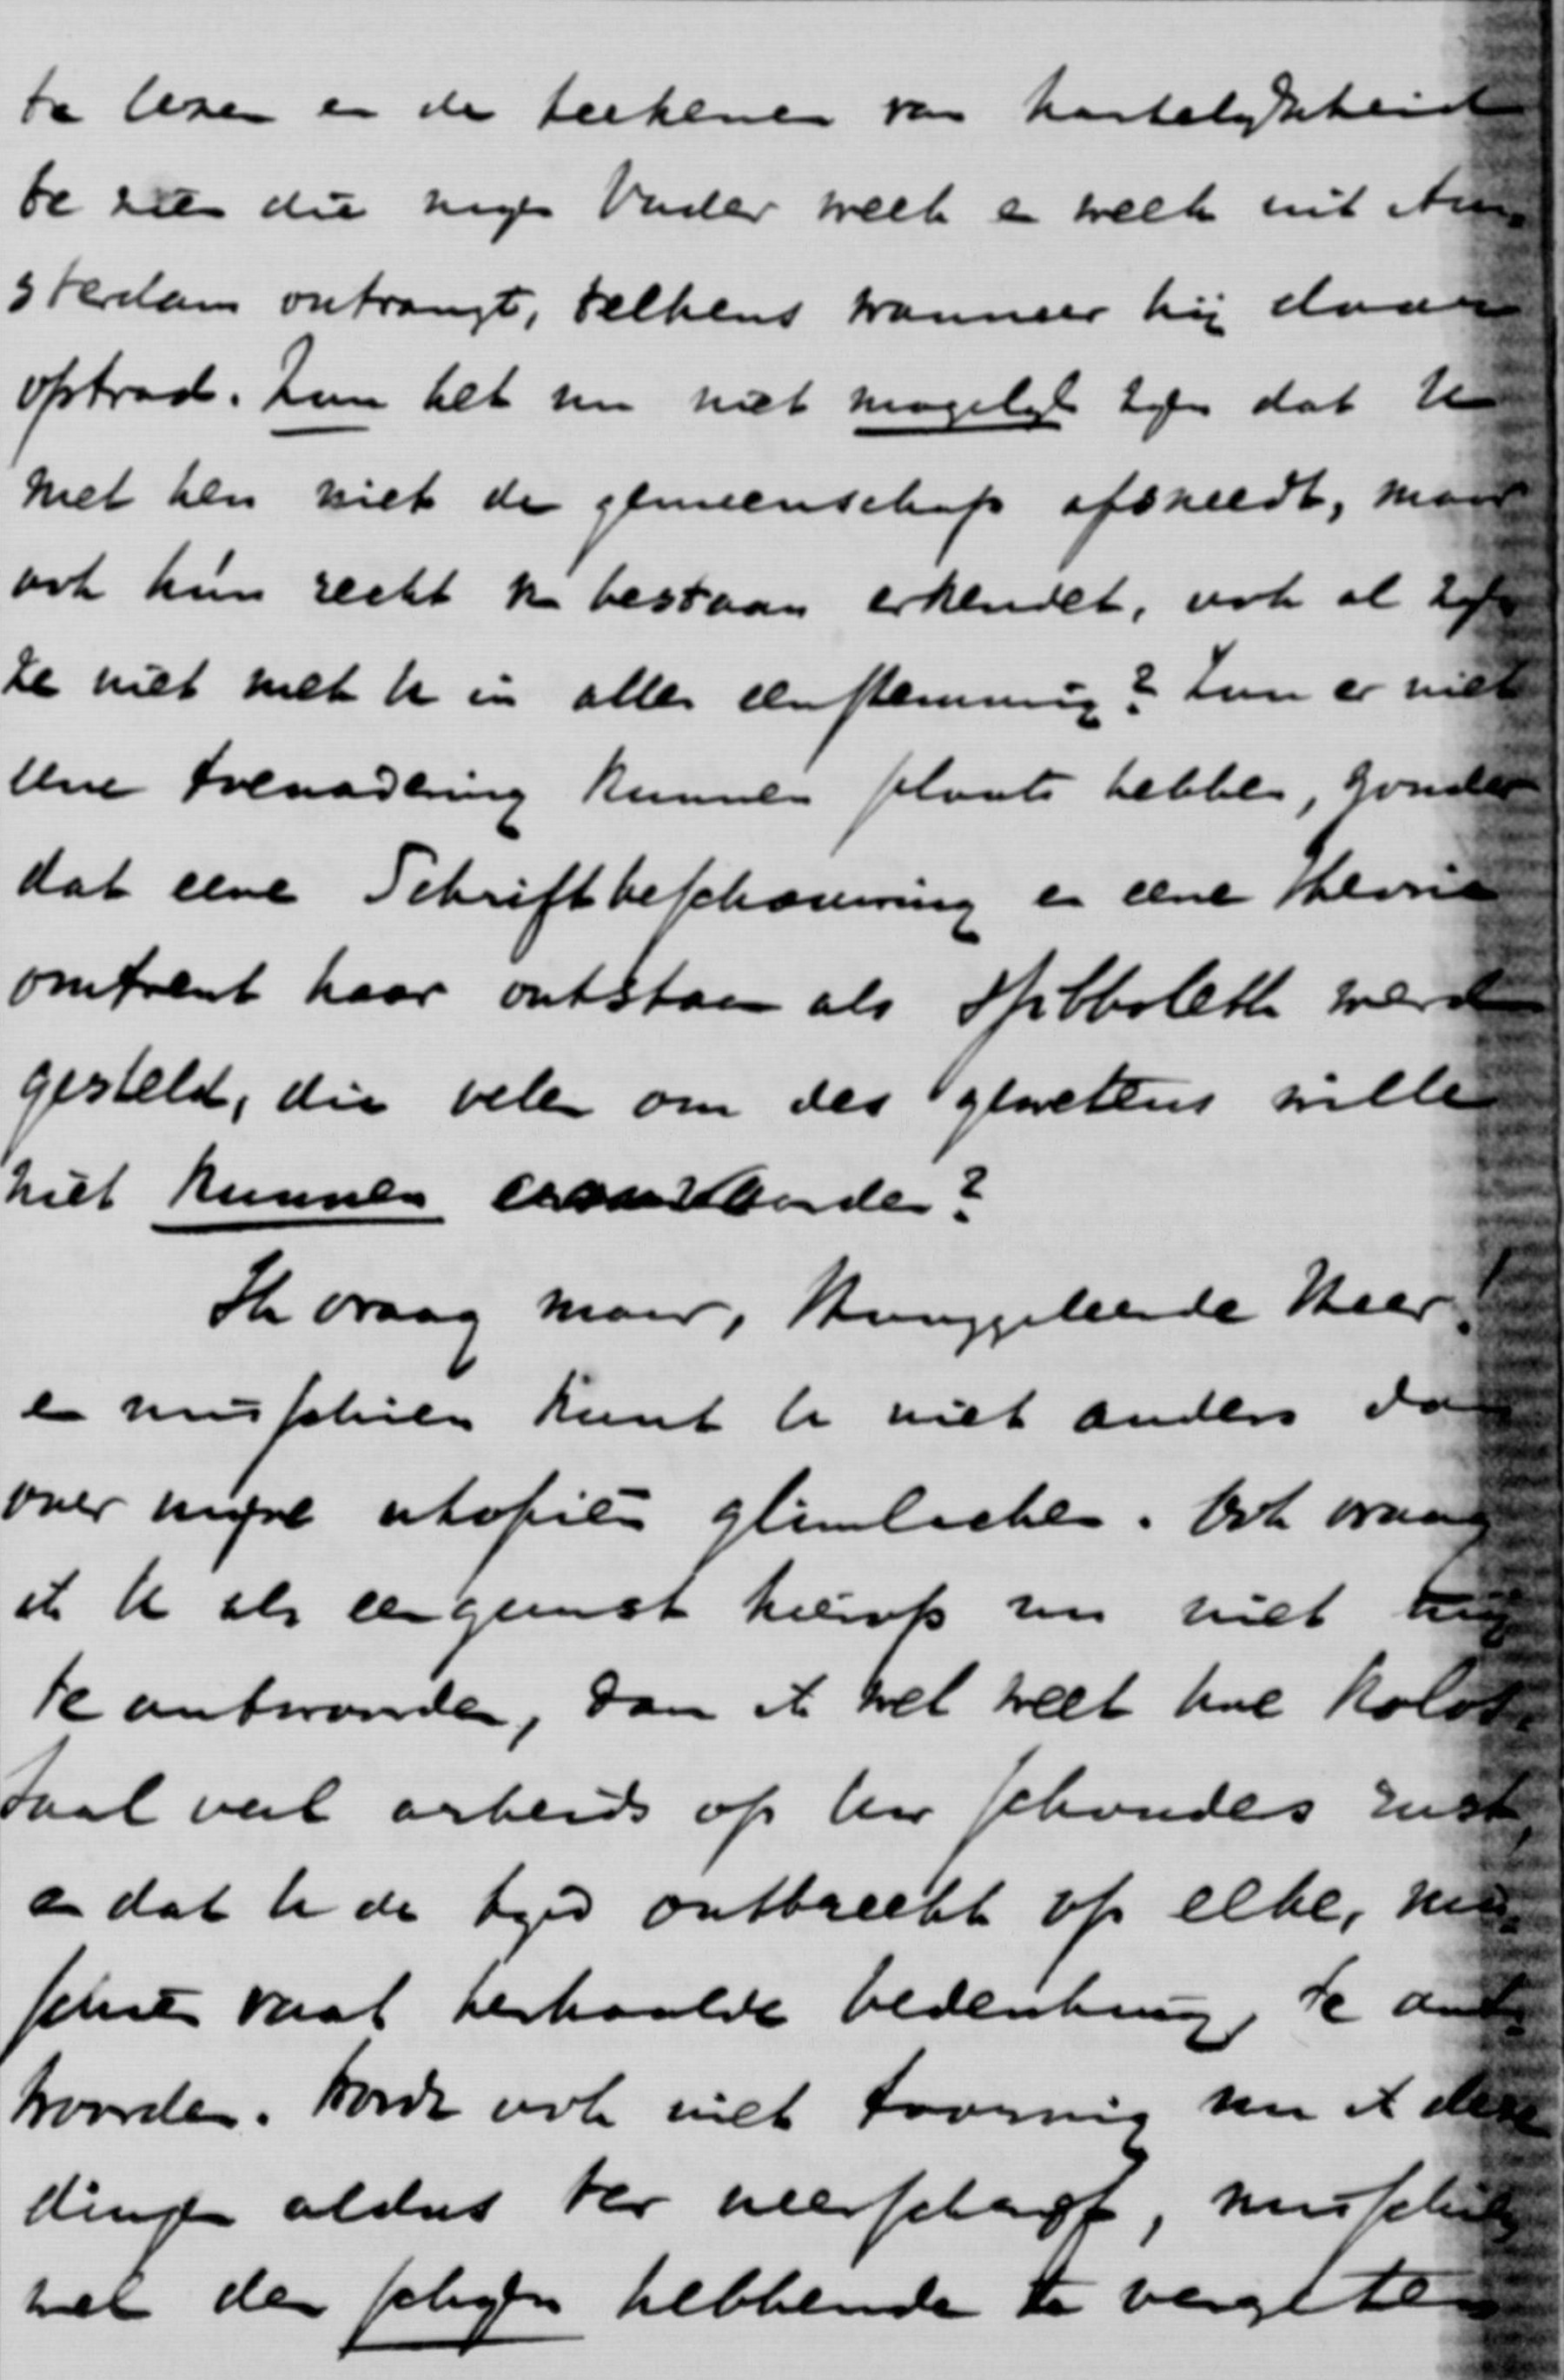 te lezen en de teekenen van hartelijkheid
te zien die mijn Vader week en week uit Am-
sterdam ontvangt, telkens wanneer hij daar
optrad. Zou het nu niet mogelijk zijn dat U
met hen niet de gemeenschap afsneedt, maar
ook hun recht v. bestaan erkendet, ook al zijn
ze niet met U in alles eenstemmig? Zou er niet
eene toenadering kunnen plaats hebben, zonder
dat eene Schriftbeschouwing en eene theorie
omtrent haar ontstaan als Shibboleth werd
gesteld, die velen om des gewetens wille
niet kunnen aanvaarden?
Ik vraag maar, Hooggeleerde Heer!
en misschien kunt U niet anders dan
over mijne utopieën glimlachen. Ook vraag
ik U als een gunst hierop nu niet mij
te antwoorden, daar ik wel weet hoe kolos-
saal veel arbeids op Uw schouders rust,
en dat U de tijd ontbreekt op elke, mis-
schien vaak herhaalde bedenking, te ant-
woorden. Wordt ook niet toornig nu ik deze
dingen aldus ter neerschreef, misschien
wel den schijn hebbende te vergeten